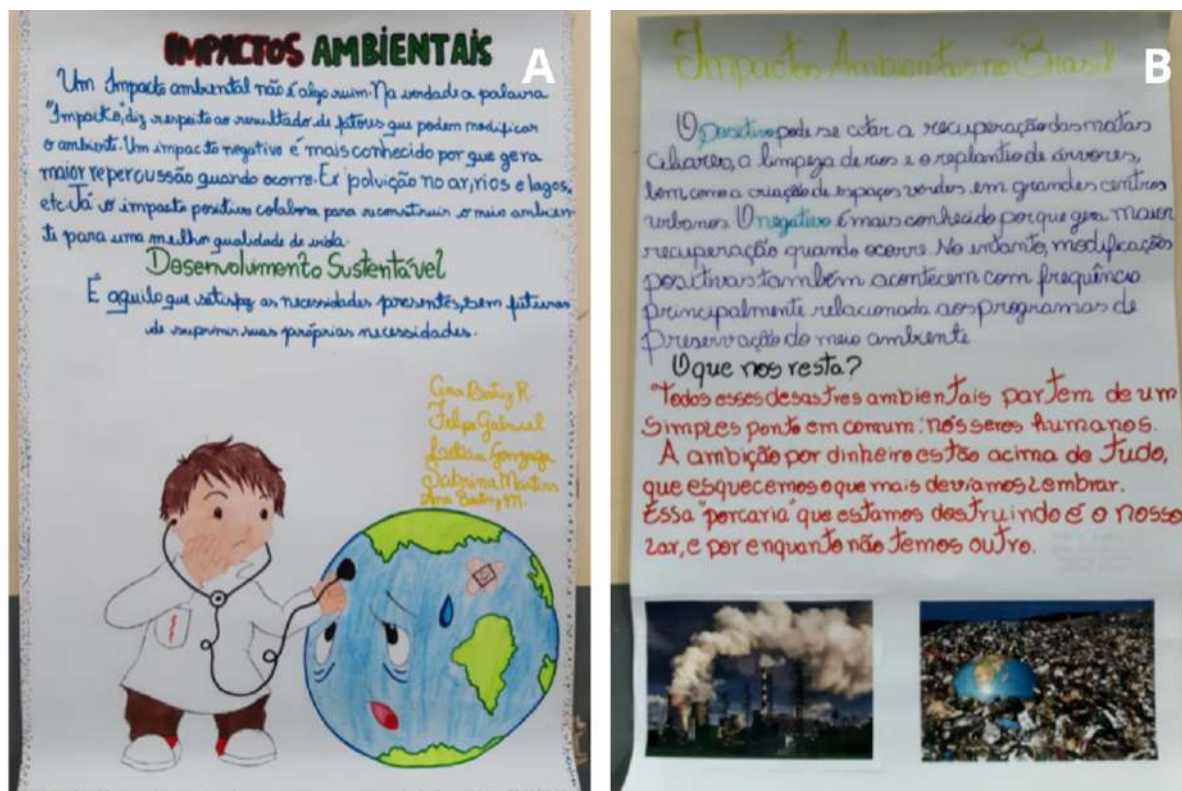 IMPACTOS AMBIENTAIS
A
Um Impacto ambiental não é algo ruim. Na verdade a palavra
"Impacto", diz respeito ao resultado de fatores que podem modificar
o ambiente. Um impacto negativo é mais conhecido por que gera
maior repercussão quando ocorre. Ex poluição no ar, rios e lagos,
etc. Já o impacto positivo colabora para reconstruir o meio ambien-
te para uma melhor qualidade de vida.
Desenvolvimento Sustentável
É aquilo que satisfaz as necessidades presentes, sem futuras
de suprimir suas próprias necessidades.
Ana Beatriz R.
Felipe Gabriel
Letícia Gonzaga
Sabrina Martins
Ana Beatriz M.
Impactos Ambientais no Brasil
B
O positivo pode se citar a recuperação das matas
ciliares, a limpeza de rios e o replantio de árvores,
bem como a criação de espaços verdes em grandes centros
urbanos. O negativo é mais conhecido porque gera maior
recuperação quando ocorre. No entanto, modificações
positivas também acontecem com frequência
principalmente relacionada aos programas de
preservação do meio ambiente.
O que nos resta?
Todos esses desastres ambientais partem de um
simples ponto em comum: nós seres humanos.
A ambição por dinheiro estão acima de tudo,
que esquecemos o que mais devíamos lembrar.
Essa "porcaria" que estamos destruindo é o nosso
lar, e por enquanto não temos outro.